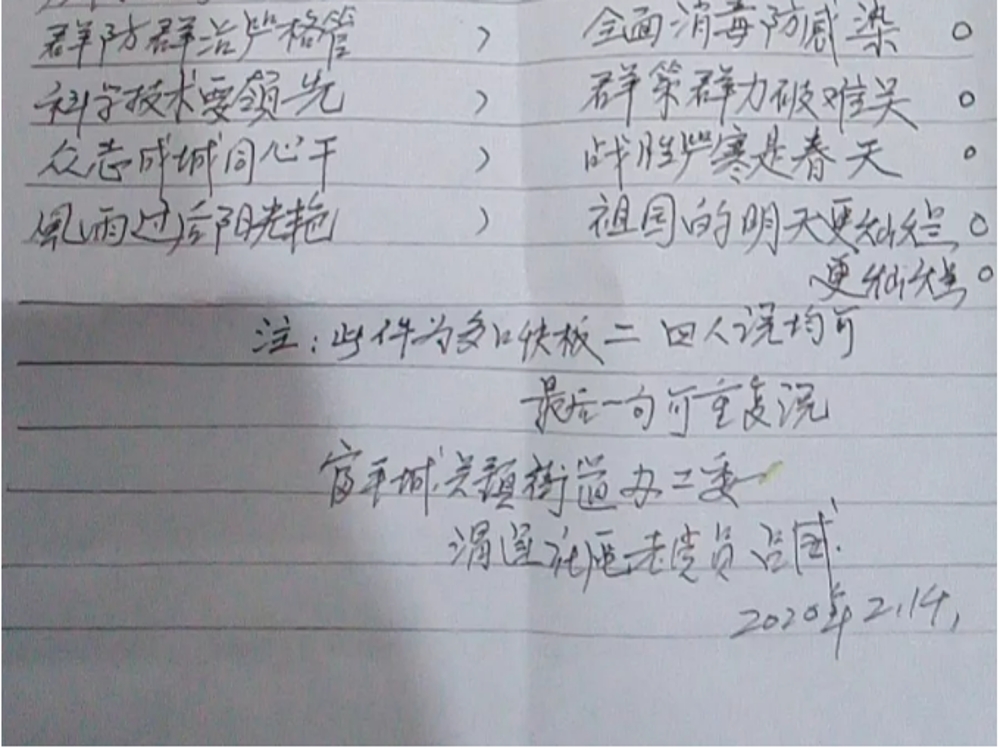 群防群治严格管， 全面消毒防感染。
科学技术要领先， 群策群力破难关。
众志成城同心干， 战胜严寒是春天。
風雨过后阳光艳， 祖国的明天更灿烂。
更灿烂。
注：此件为多口快板二 四人说均可
最后一句可重复说
富平城关镇街道办二委
老党员
2020年2.14,